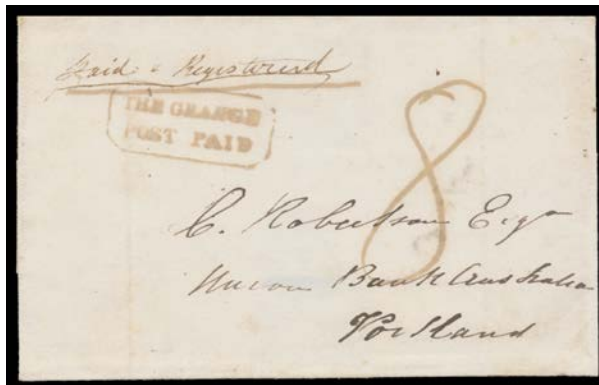 Paid & Registered
THE GRANGE
POST PAID
8
C. Robertson Esqr
Union Bank Australia
Portland